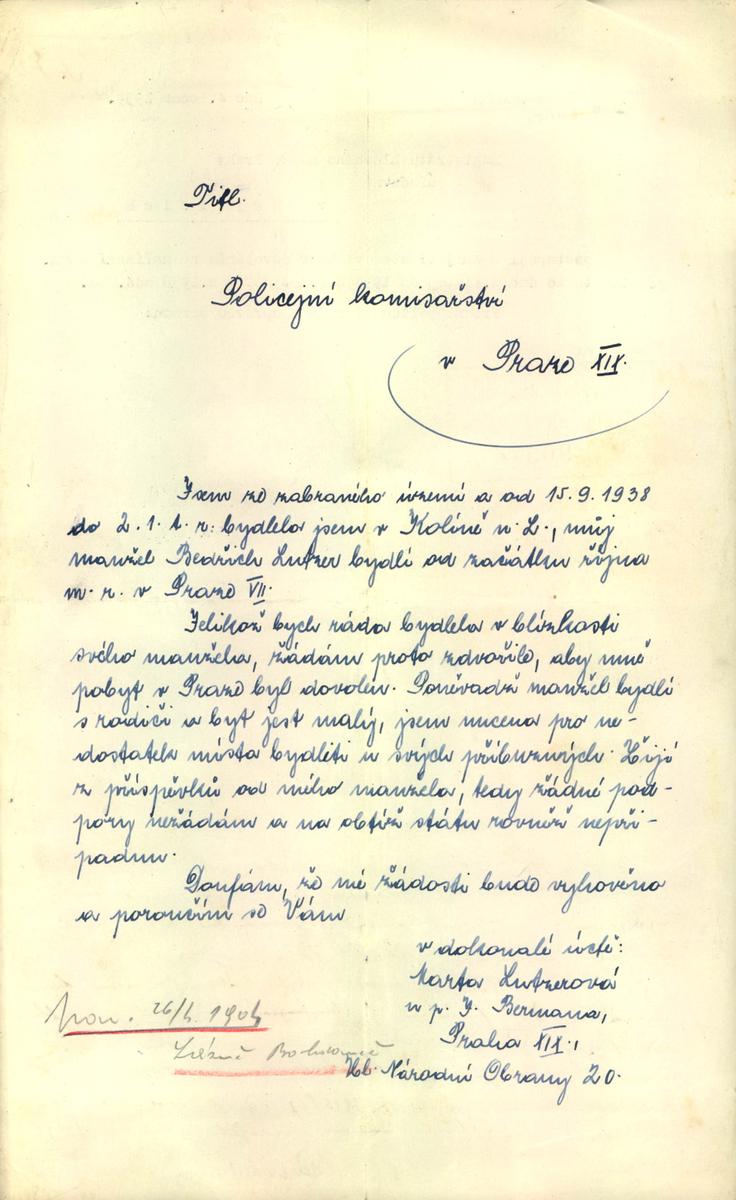 Titl.
Policejní komisařství
v Praze XIX.
Jsem ze zabraného území a od 15.9.1938
do 2.1.t.r. bydlela jsem v Kolíně n.L., můj
manžel Bedřich Lutzer bydlí od začátku října
m.r. v Praze VII.
Jelikož bych ráda bydlela v blízkosti
svého manžela, žádám proto zdvořile, aby mně
pobyt v Praze byl dovolen. Poněvadž manžel bydlí
s rodiči a byt jest malý, jsem nucena pro ne-
dostatek místa bydleti u svých příbuzných. Žiji
z příspěvků od mého manžela, tedy žádné pod-
pory nežádám a na obtíž státu rovněž nepři-
padnu.
Doufám, že mé žádosti bude vyhověno
a poroučím se Vám
v dokonalé úctě:
Marta Lutzerová
u p. J. Bermana,
Praha XIX.,
Nár. 26/6. 1904
Nb. Národní Obrany 20.